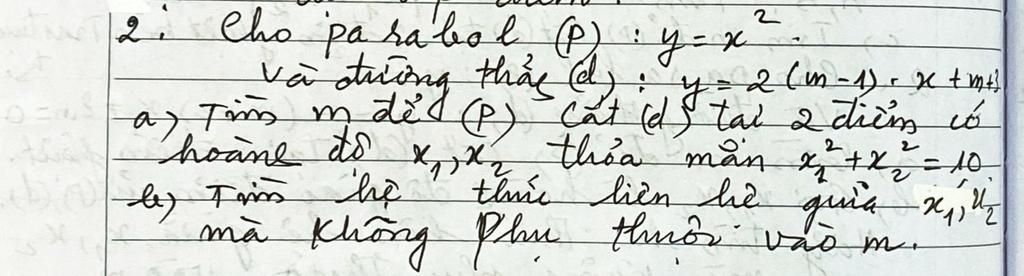 2. Cho parabol (P) : y = x².
và đường thẳng (d) : y = 2(m-1).x + m+3
a) Tìm m để (P) cắt (d) tại 2 điểm có
hoành độ x₁, x₂ thỏa mãn x₁² + x₂² = 10
b) Tìm hệ thức liên hệ giữa x₁, x₂
mà không phụ thuộc vào m.